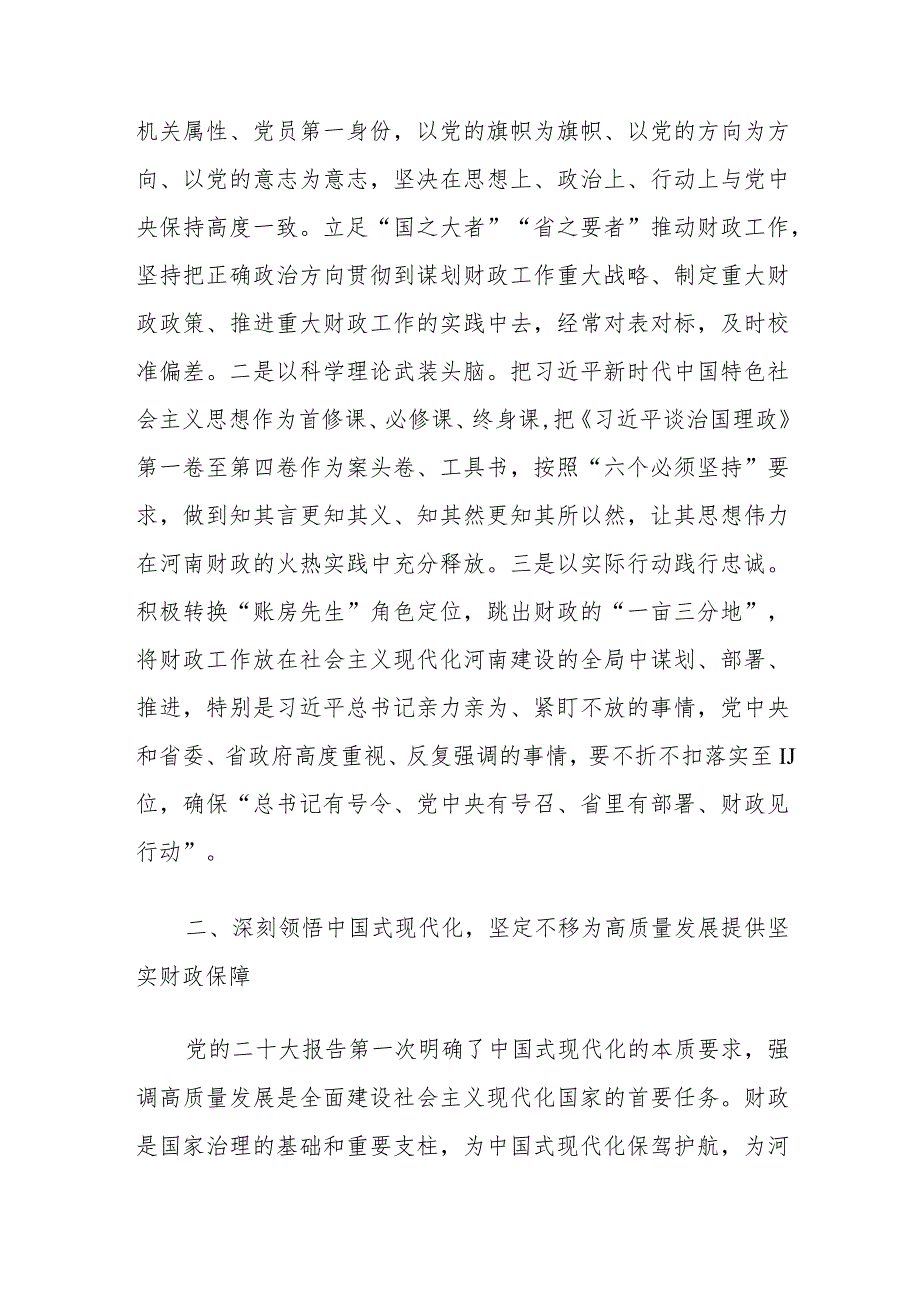 机关属性、党员第一身份，以党的旗帜为旗帜、以党的方向为方
向、以党的意志为意志，坚决在思想上、政治上、行动上与党中
央保持高度一致。立足“国之大者”“省之要者”推动财政工作，
坚持把正确政治方向贯彻到谋划财政工作重大战略、制定重大财
政政策、推进重大财政工作的实践中去，经常对表对标，及时校
准偏差。二是以科学理论武装头脑。把习近平新时代中国特色社
会主义思想作为首修课、必修课、终身课,把《习近平谈治国理政》
第一卷至第四卷作为案头卷、工具书，按照“六个必须坚持”要
求，做到知其言更知其义、知其然更知其所以然，让其思想伟力
在河南财政的火热实践中充分释放。三是以实际行动践行忠诚。
积极转换“账房先生”角色定位，跳出财政的“一亩三分地”，
将财政工作放在社会主义现代化河南建设的全局中谋划、部署、
推进，特别是习近平总书记亲力亲为、紧盯不放的事情，党中央
和省委、省政府高度重视、反复强调的事情，要不折不扣落实至IJ
位，确保“总书记有号令、党中央有号召、省里有部署、财政见
行动”。
二、深刻领悟中国式现代化，坚定不移为高质量发展提供坚
实财政保障
党的二十大报告第一次明确了中国式现代化的本质要求，强
调高质量发展是全面建设社会主义现代化国家的首要任务。财政
是国家治理的基础和重要支柱，为中国式现代化保驾护航，为河